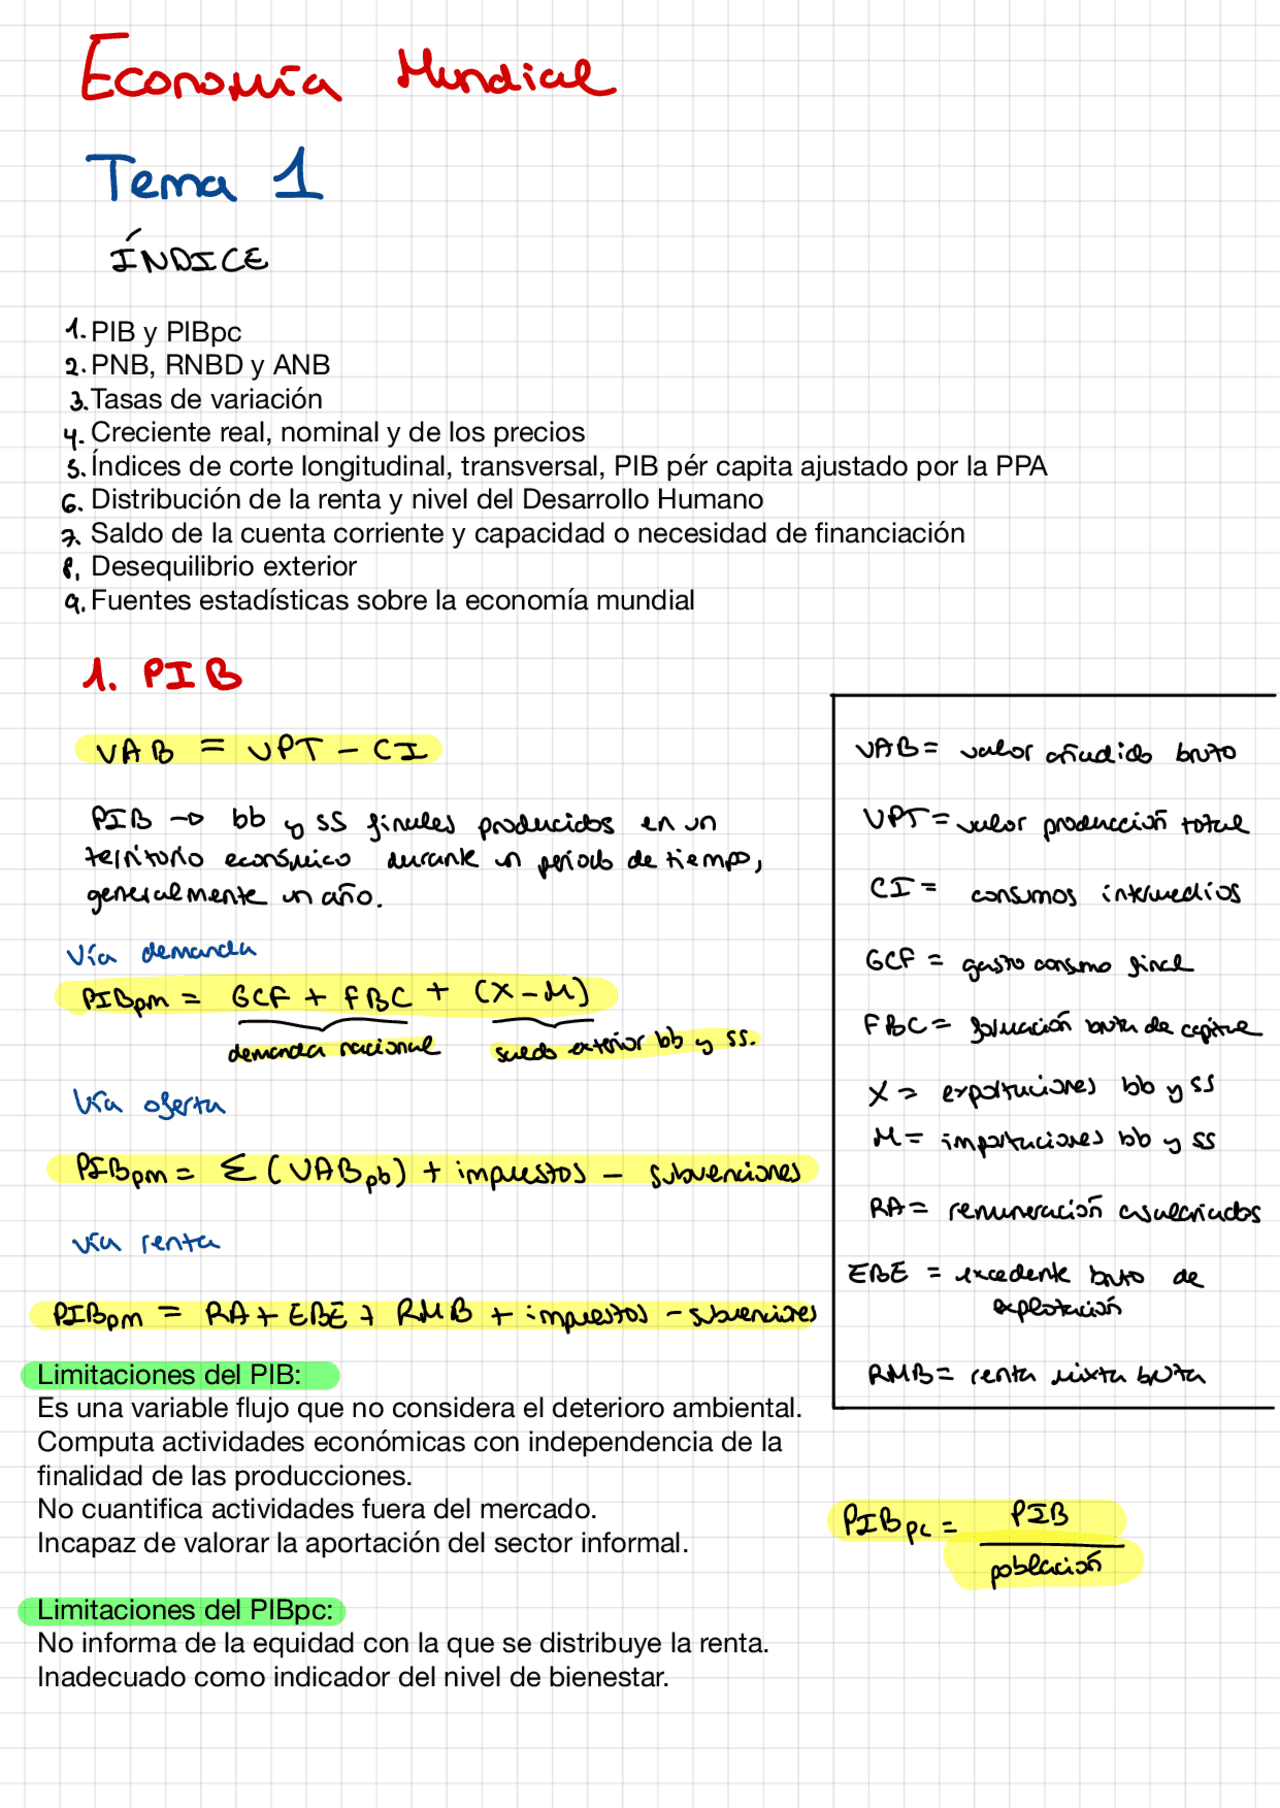 Economía Mundial
Tema 1
ÍNDICE
1. PIB y PIBpc
2. PNB, RNBD y ANB
3. Tasas de variación
4. Creciente real, nominal y de los precios
5. Índices de corte longitudinal, transversal, PIB pér capita ajustado por la PPA
6. Distribución de la renta y nivel del Desarrollo Humano
7. Saldo de la cuenta corriente y capacidad o necesidad de financiación
8. Desequilibrio exterior
9. Fuentes estadísticas sobre la economía mundial
1. PIB
VAB = VPT - CI
PIB → bb y ss finales producidos en un
territorio económico durante un periodo de tiempo,
generalmente un año.
Vía demanda
PIBpm = GCF + FBC + (X - M)
demanda nacional saldo exterior bb y ss.
Vía oferta
PIBpm = Σ (VABpb) + impuestos - subvenciones
vía renta
PIBpm = RA + EBE + RMB + impuestos - subvenciones
VAB = valor añadido bruto
VPT = valor producción total
CI = consumos intermedios
GCF = gasto consumo final
FBC = formación bruta de capital
X = exportaciones bb y ss
M = importaciones bb y ss
RA = remuneración asalariados
EBE = excedente bruto de
explotación
RMB = renta mixta bruta
Limitaciones del PIB:
Es una variable flujo que no considera el deterioro ambiental.
Computa actividades económicas con independencia de la
finalidad de las producciones.
No cuantifica actividades fuera del mercado.
Incapaz de valorar la aportación del sector informal.
PIBpc = PIB
población
Limitaciones del PIBpc:
No informa de la equidad con la que se distribuye la renta.
Inadecuado como indicador del nivel de bienestar.